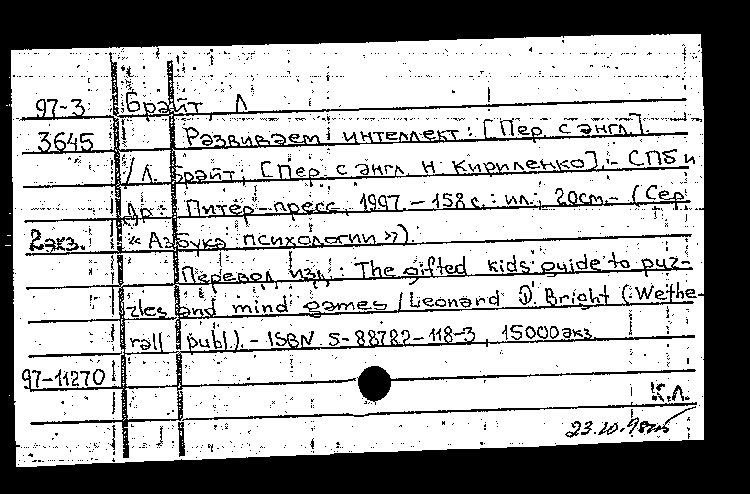 97-3 Брайт, Л
3645 Развиваем интеллект: [Пер. с англ.].
/ Л. Брайт; [Пер. с англ. Н. Кириленко].- СПб и
др.: Питер-пресс, 1997.- 158 с.: ил.; 20см.- (Сер.
2 экз. «Азбука психологии»).
Перевод изд.: The gifted kids' guide to puz-
zles and mind games / Leonard J. Bright (:Wethe-
rall publ.).- ISBN 5-88782-118-3, 15000 экз.
97-11270
К.Л.
23.10.98